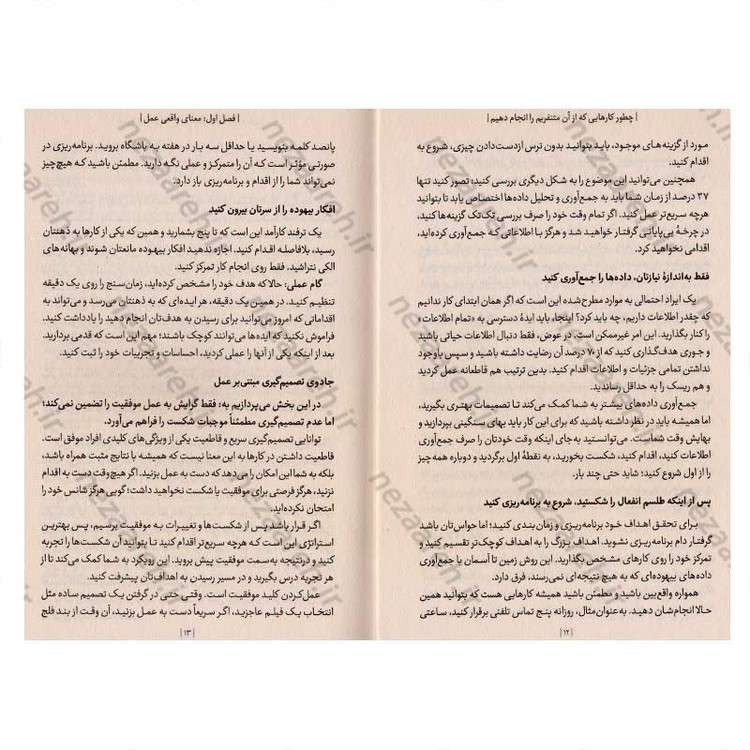 | چطور کارهایی که از آن متنفریم را انجام دهیم |
مورد از گزینه‌های موجود، باید بتوانید بدون ترس ازدست‌دادن چیزی، شروع به
اقدام کنید.
همچنین می‌توانید این موضوع را به شکل دیگری بررسی کنید؛ تصور کنید تنها
۳۷ درصد از زمان شما باید به جمع‌آوری و تحلیل داده‌ها اختصاص یابد تا بتوانید
هرچه سریع‌تر عمل کنید. اگر تمام وقت خود را صرف بررسی تک‌تک گزینه‌ها کنید،
در چرخهٔ بی‌پایانی گرفتار خواهید شد و هرگز با اطلاعاتی که جمع‌آوری کرده‌اید،
اقدامی نخواهید کرد.
فقط به‌اندازهٔ نیازتان، داده‌ها را جمع‌آوری کنید
یک ایراد احتمالی به موارد مطرح‌شده این است که اگر همان ابتدای کار ندانیم
که چقدر اطلاعات داریم، چه باید کرد؟ اینجا، باید ایدهٔ دسترسی به «تمام اطلاعات»
را کنار بگذارید. این امر غیرممکن است. در عوض، فقط دنبال اطلاعات حیاتی باشید
و جوری هدف‌گذاری کنید که از ۷۰ درصد آن رضایت داشته باشید و سپس باوجود
نداشتن تمامی جزئیات و اطلاعات اقدام کنید. بدین ترتیب هم قاطعانه عمل کردید
و هم ریسک را به حداقل رساندید.
جمع‌آوری داده‌های بیشتر به شما کمک می‌کند تا تصمیمات بهتری بگیرید،
اما همیشه باید در نظر داشته باشید که برای این کار باید بهای سنگینی بپردازید و
بهایش وقت شماست. می‌توانستید به‌جای اینکه وقت خودتان را صرف جمع‌آوری
اطلاعات کنید، اقدام کنید، شکست بخورید، به نقطهٔ اول برگردید و دوباره همه‌چیز
را از اول شروع کنید؛ شاید حتی چند بار.
پس از اینکه طلسم انفعال را شکستید، شروع به برنامه‌ریزی کنید
برای تحقق اهداف خود برنامه‌ریزی و زمان‌بندی کنید؛ اما حواس‌تان باشد
گرفتار دام برنامه‌ریزی نشوید. اهداف بزرگ را به اهداف کوچک‌تر تقسیم کنید و
تمرکز خود را روی کارهای مشخصی بگذارید. این روش زمین تا آسمان با جمع‌آوری
داده‌های بیهوده‌ای که به هیچ نتیجه‌ای نمی‌رسند، فرق دارد.
همواره واقع‌بین باشید و مطمئن باشید همیشه کارهایی هست که بتوانید همین
حالا انجام‌شان دهید. به‌عنوان‌مثال، روزانه پنج تماس تلفنی برقرار کنید، ساعتی
| ۱۲ |
| فصل اول: معنای واقعی عمل |
پانصد کلمه بنویسید یا حداقل سه بار در هفته به باشگاه بروید. برنامه‌ریزی در
صورتی مؤثر است که آن را متمرکز و عملی نگه دارید. مطمئن باشید که هیچ‌چیز
نمی‌تواند شما را از اقدام و برنامه‌ریزی باز دارد.
افکار بیهوده را از سرتان بیرون کنید
یک ترفند کارآمد این است که تا پنج بشمارید و همین که یکی از کارها به ذهنتان
رسید، بلافاصله اقدام کنید. اجازه ندهید افکار بیهوده مانعتان شوند و بهانه‌های
الکی نتراشید. فقط روی انجام کار تمرکز کنید.
گام عملی: حالا که هدف خود را مشخص کرده‌اید، زمان‌سنج را روی یک دقیقه
تنظیم کنید. در همین یک دقیقه، هر ایده‌ای که به ذهنتان می‌رسد و می‌تواند به
اقداماتی که امروز می‌توانید برای رسیدن به هدف‌تان انجام دهید را یادداشت کنید.
فراموش نکنید که ایده‌ها می‌توانند کوچک باشند؛ مهم این است که قدمی بردارید.
بعد از اینکه یکی از آن‌ها را عملی کردید، احساسات و تجربیات خود را ثبت کنید.
جادوی تصمیم‌گیری مبتنی‌بر عمل
در این بخش می‌پردازیم به: فقط گرایش به عمل موفقیت را تضمین نمی‌کند؛
اما عدم تصمیم‌گیری مطمئناً موجبات شکست را فراهم می‌آورد.
توانایی تصمیم‌گیری سریع و قاطعیت یکی از ویژگی‌های کلیدی افراد موفق است.
قاطعیت داشتن در کارها به این معنا نیست که همیشه با نتایج مثبت همراه باشد،
بلکه به شما این امکان را می‌دهد که دست به عمل بزنید. اگر هیچ‌وقت دست به اقدام
نزنید، هرگز فرصتی برای موفقیت یا شکست نخواهید داشت؛ گویی هرگز شانس خود را
امتحان نکرده‌اید.
اگر قرار باشد پس از شکست‌ها و تغییرات به موفقیت برسیم، پس بهترین
استراتژی این است که هرچه سریع‌تر اقدام کنید تا بتوانید آن شکست‌ها را تجربه
کنید و درنتیجه به‌سمت موفقیت پیش بروید. این رویکرد به شما کمک می‌کند تا از
هر تجربه درس بگیرید و در مسیر رسیدن به اهداف‌تان پیشرفت کنید.
عمل‌کردن کلید موفقیت است. وقتی حتی در گرفتن یک تصمیم ساده مثل
انتخاب یک فیلم عاجزید، اگر سریعاً دست به عمل بزنید، آن وقت از بند فلج
| ۱۳ |
nezaareh.ir